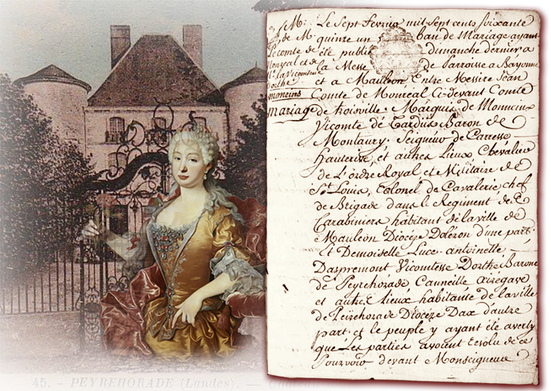 Le Sept fevrier mil Sept cents Soixante
quinze un ban de Mariage ayant
été publié dimanche dernier a
la Messe de Parroisse a Bayonne
et a Mauleon Entre Messire Jean
Comte de Monreal Ci-devant Comte
de troisville Marquis de Moneins
Vicomte de Tardits Baron de
Montaury Seigneur de Carresse
hauterive et autres Lieux Chevalier
de L'ordre Royal et Militaire de
St Louis, Colonel de Cavalerie chef
de Brigade dans le Regiment des
Carabiniers habitant de la ville de
Mauleon Diocèze Doleron d'une part
et Demoiselle Luce antoinette
Daspremont Vicomtesse Dorthe Baronne
de Peyrehorade Canneille
et autres lieux habitante de la ville
de Peirehorade Diocèze Dax d'autre
part et le peuple y ayant été averty
que Les parties avoient de
Pourvoir devant Monseigneur
Mr
de M
Comte de
Monreal et de
la Vicomtesse
Dorthe
moneins
mariage
45. - PEYREHORADE (Landes). -